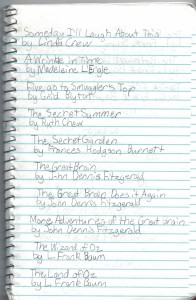 Someday I'll Laugh About This
by Linda Crew
A Wrinkle In Time
by Madeleine L'Engle
Five go to Smuggler's Top
by Enid Blyton
The Secret Summer
by Ruth Chew
The Secret Garden
by Frances Hodgson Burnett
The Great Brain
by John Dennis Fitzgerald
The Great Brain Does it Again
by John Dennis Fitzgerald
More Adventures of the Great brain
by John Dennis Fitzgerald
The Wizard of Oz
by L. Frank Baum
The Land of Oz
by L. Frank Baum